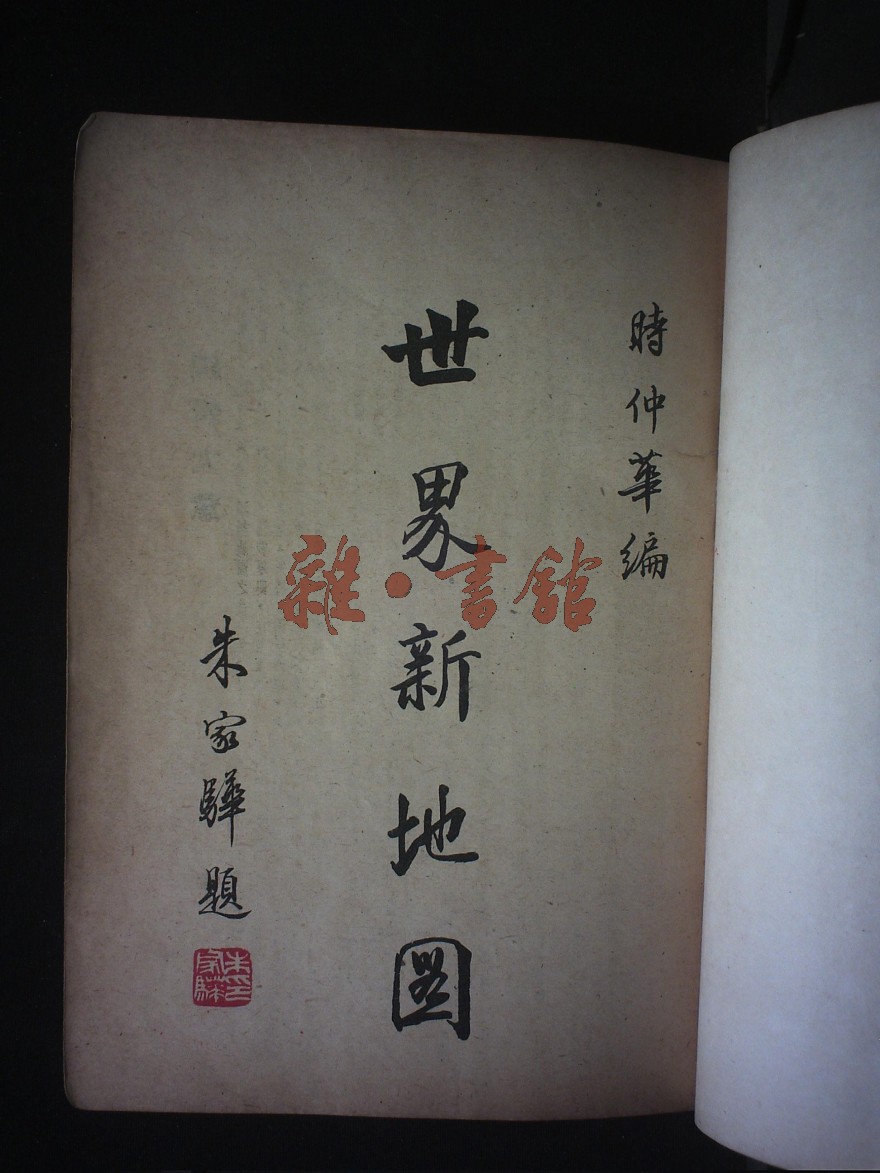 時仲華編
世界新地圖
朱家驊題
朱家驊印
雜·書館